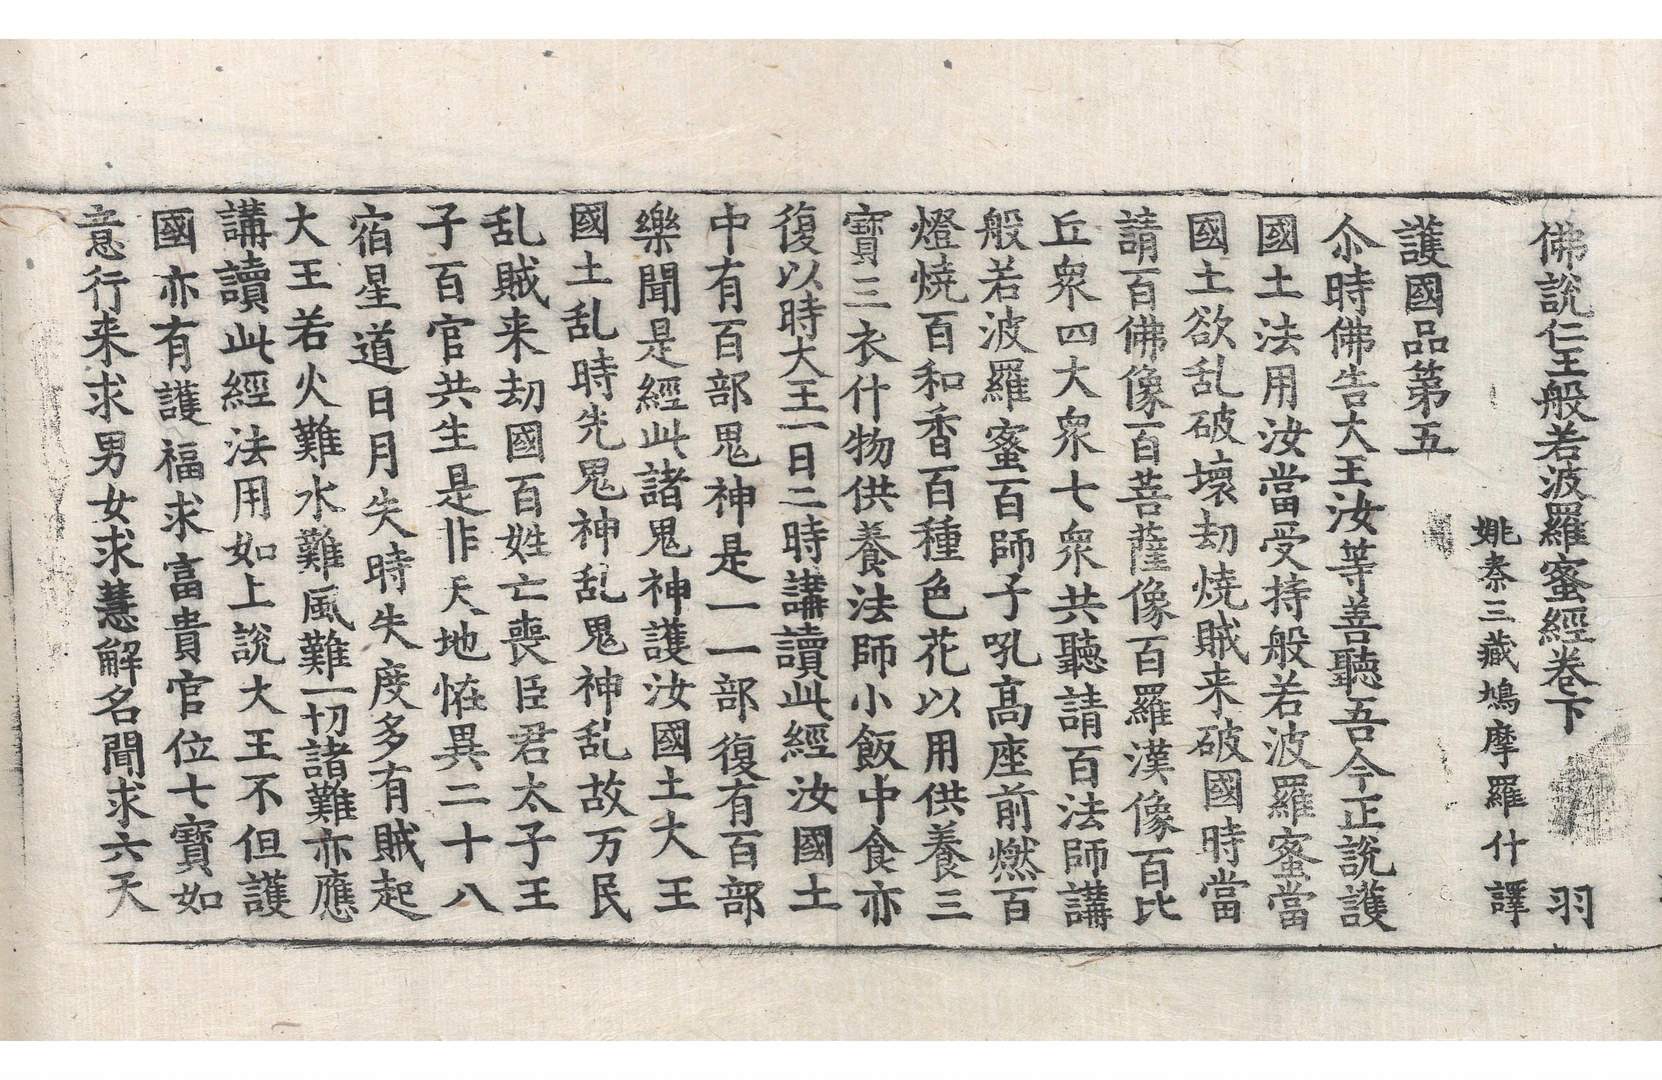 佛說仁王般若波羅蜜經卷下 羽
姚秦三藏鳩摩羅什譯
護國品第五
尒時佛告大王汝等善聽吾今正說護
國土法用汝當受持般若波羅蜜當
國土欲乱破壞劫燒賊来破國時當
請百佛像百菩薩像百羅漢像百比
丘衆四大衆七衆共聽請百法師講
般若波羅蜜百師子吼高座前燃百
燈燒百和香百種色花以用供養三
寶三衣什物供養法師小飯中食亦
復以時大王一日二時講讀此經汝國土
中有百部鬼神是一一部復有百部
樂聞是經此諸鬼神護汝國土大王
國土乱時先鬼神乱鬼神乱故万民
乱賊来劫國百姓亡喪臣君太子王
子百官共生是非天地恠異二十八
宿星道日月失時失度多有賊起
大王若火難水難風難一切諸難亦應
講讀此經法用如上說大王不但護
國亦有護福求富貴官位七寶如
意行来求男女求慧解名聞求六天